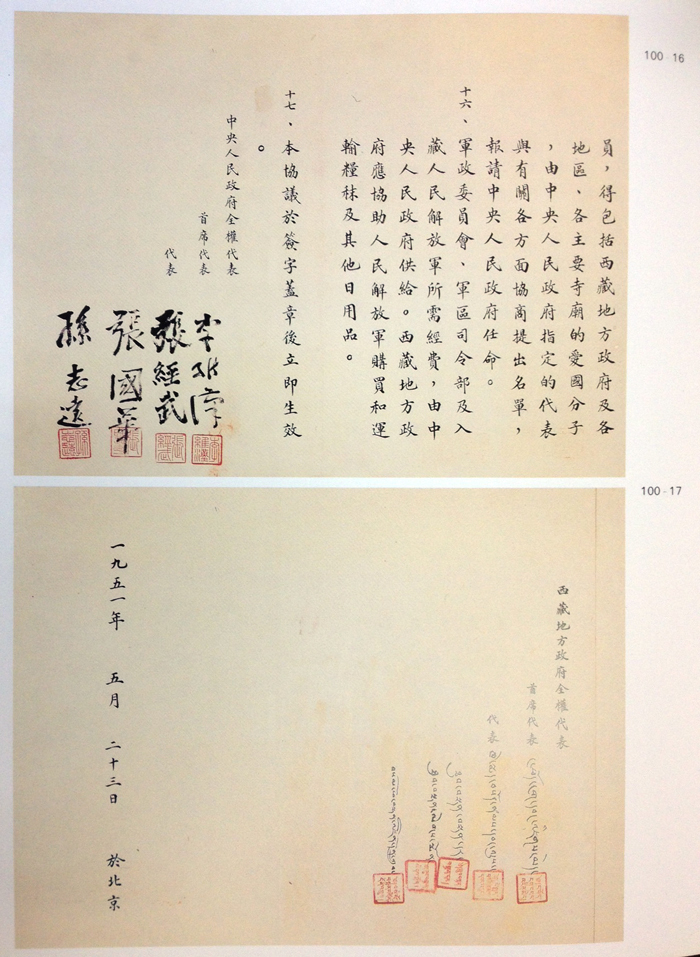 100-16
員，得包括西藏地方政府及各
地區、各主要寺廟的愛國分子
，由中央人民政府指定的代表
與有關各方面協商提出名單，
報請中央人民政府任命。
十六、軍政委員會、軍區司令部及入
藏人民解放軍所需經費，由中
央人民政府供給。西藏地方政
府應協助人民解放軍購買和運
輸糧秣及其他日用品。
十七、本協議於簽字蓋章後立即生效
。
中央人民政府全權代表
首席代表 李維漢
代表 張經武
張國華
孫志遠
100-17
西藏地方政府全權代表
首席代表
代表
一九五一年 五月 二十三日 於北京